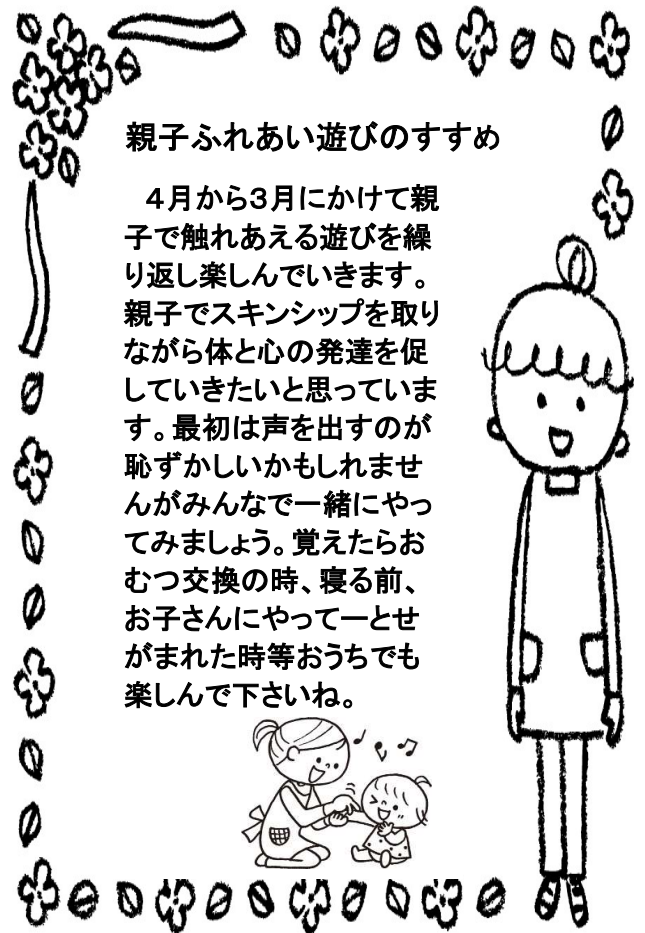 親子ふれあい遊びのすすめ
４月から３月にかけて親
子で触れあえる遊びを繰
り返し楽しんでいきます。
親子でスキンシップを取り
ながら体と心の発達を促
していきたいと思っていま
す。最初は声を出すのが
恥ずかしいかもしれませ
んがみんなで一緒にやっ
てみましょう。覚えたらお
むつ交換の時、寝る前、
お子さんにやってーとせ
がまれた時等おうちでも
楽しんで下さいね。